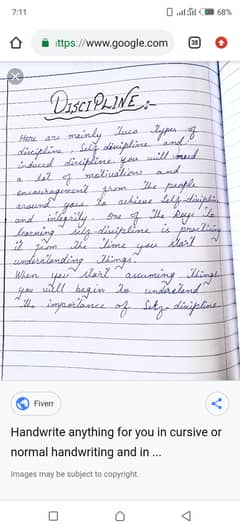 7:11
68%
https://www.google.com
38
DISCIPLINE:-
Here are mainly two types of
discipline. Self discipline and
induced discipline. you will need
a lot of motivation and
encouragement from the people
around you to achieve self-discipline
and integrity. One of the keys to
learning self-discipline is practicing
it from the time you start
understanding things.
When you start assuming things
you will begin to understand
the importance of self-discipline
Fiverr
Handwrite anything for you in cursive or
normal handwriting and in ...
Images may be subject to copyright.